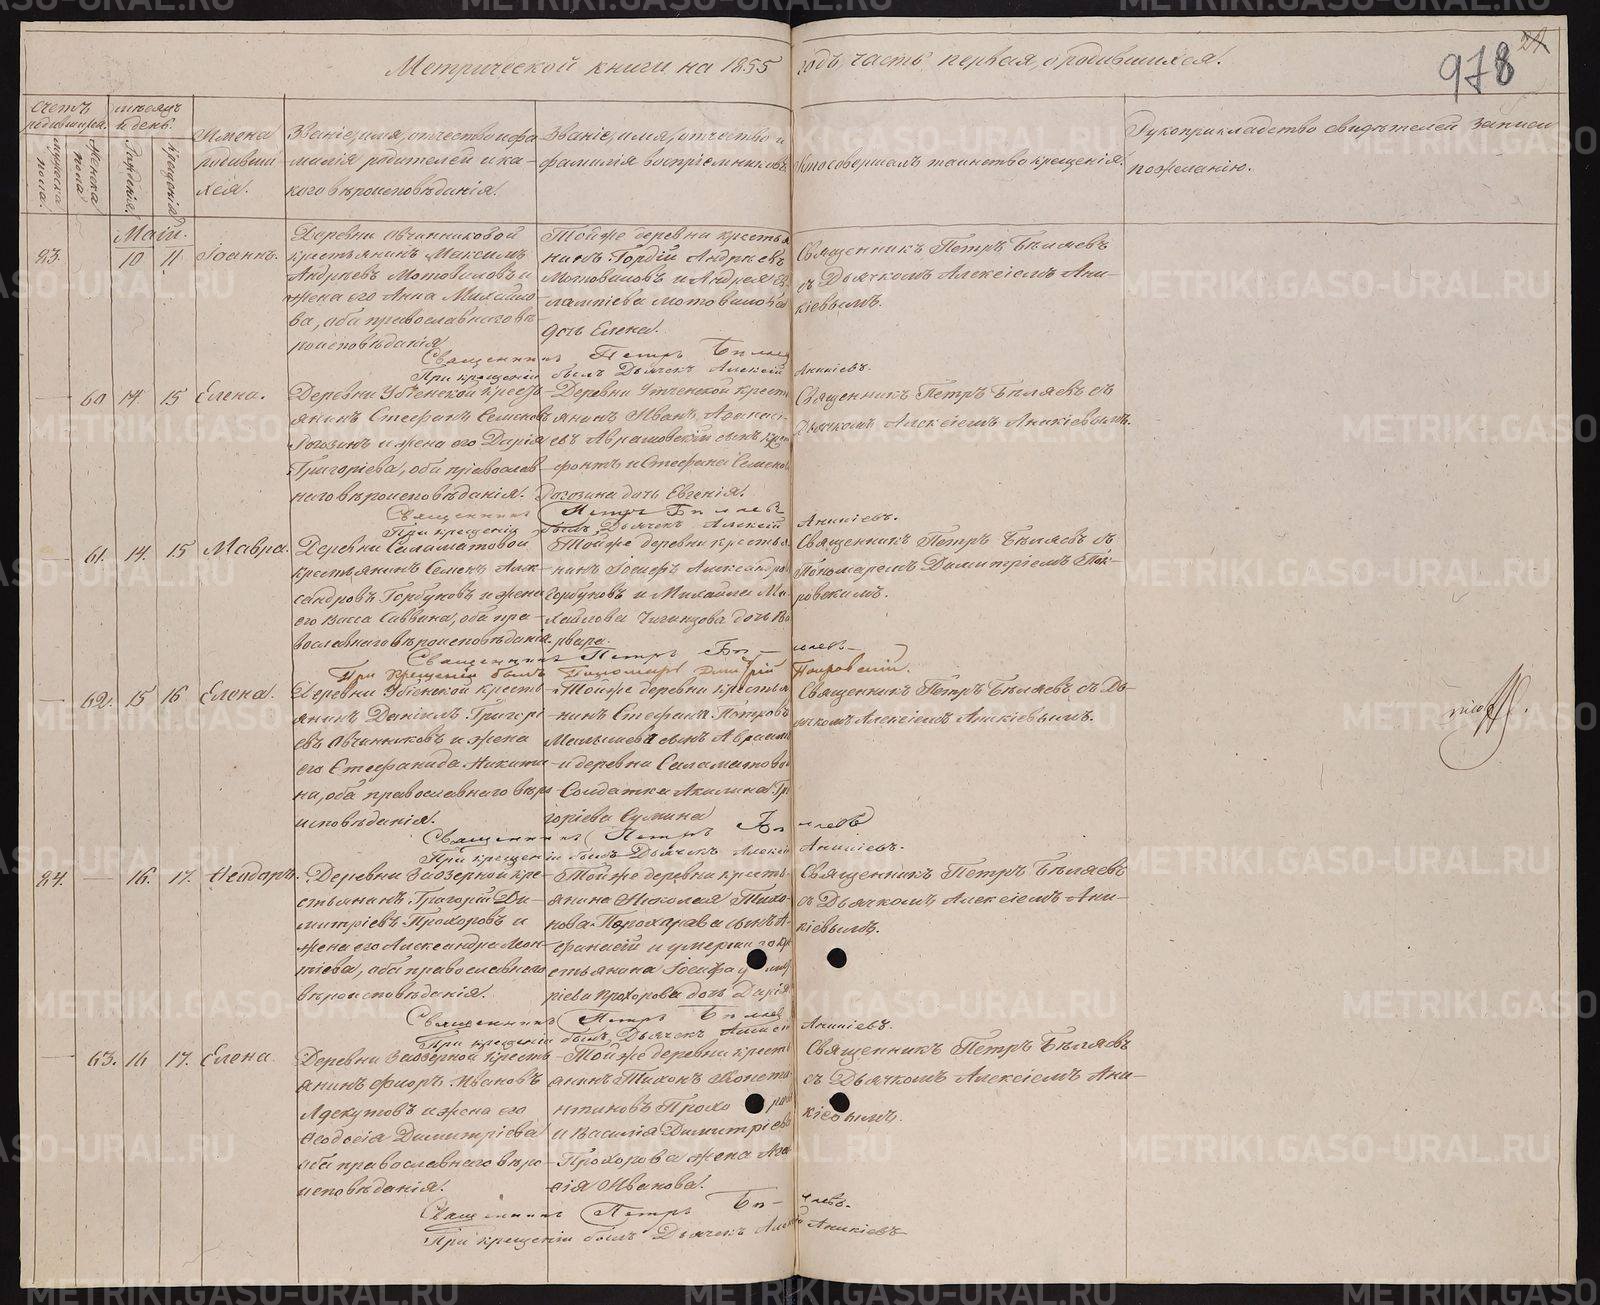 Метрической книги на 1855 годъ, часть первая, о родившихся.
978
Счетъ родившихся.
Мужеска пола.
Женска пола.
Мѣсяцъ и день.
Рожденія.
Крещенія.
Имена родивши
хся.
Званіе, имя, отчество и фа
милія родителей и ка-
кого вѣроисповѣданія.
Званіе, имя, отчество и
фамилія воспріемниковъ.
Кто совершалъ таинство крещенія.
Рукоприкладство свидѣтелей записи
по желанію.
Май.
83.
10
11
Іоаннъ.
Деревни Овчинниковой
крестьянинъ Максимъ
Андреевъ Мотовиловъ и
жена его Анна Михайло
ва, оба православнаго вѣ-
роисповѣданія
Той же деревни крестья
нинъ Гордій Андреевъ
Мотовиловъ и Андрея Ев
лампіева Мотовилова
дочь Елена.
Священникъ Петръ Бѣляевъ
съ Дьячкомъ Алексіемъ Ани-
кіевымъ.
Священникъ Петръ Бѣляев
При крещеніи былъ Дьячекъ Алексій Аникіевъ.
60
14
15
Елена.
Деревни Убіенской кресть
янинъ Стефанъ Семенов
Рогозинъ и жена его Дарія
Григоріева, оба православ
наго вѣроисповѣданія.
Деревни крестья
янинъ Иванъ Афанась
евъ Аврамовскій сынъ
и Стефана Семенов
Рогозина дочь Евгенія.
Священникъ Петръ Бѣляевъ съ
Дьячкомъ Алексіемъ Аникіевымъ.
Священникъ Петръ Бѣляевъ
При крещеніи былъ Дьячекъ Алексій Аникіевъ.
61.
14.
15
Мавра.
Деревни Саламатовой
крестьянинъ Семенъ Алек
сандровъ Горбуновъ и жена
его Васса Саввина, оба пра-
вославнаго вѣроисповѣданія.
Той же деревни крестья
нинъ Іосифъ Александров
Горбуновъ и Михайла Ми
хайлова дочь Ва
рвара.
Священникъ Петръ Бѣляевъ съ
Пономаремъ Димитріемъ Пок-
ровскимъ.
Священникъ Петръ Бѣ-ляевъ
При крещеніи былъ Пономарь Димитрій Покровскій.
62.
15
16
Елена.
Деревни Убіенской кресть
янинъ Даніилъ Григорі
евъ Овчинниковъ и жена
его Стефанида Никити
на, оба православнаго вѣро
исповѣданія.
Той же деревни крестья
нинъ Стефанъ Петровъ
Малышевъ сынъ Авраамъ
и деревни Саламатовой
Солдатка Акилина Гри
горіева Сумина
Священникъ Петръ Бѣляевъ съ Дь-
ячкомъ Алексіемъ Аникіевымъ.
Священникъ Петръ Бѣляевъ
При крещеніи былъ Дьячекъ Алексій Аникіевъ.
84.
16.
17.
Ѳеодоръ.
Деревни Заозерной кре-
стьянинъ Григорій Ди-
митріевъ Прохоровъ и
жена его Александра Леон
тіева, оба православнаго
вѣроисповѣданія.
Той же деревни кресть
янина Николая Тихо-
нова Прохорова сынъ А-
фанасій и умершаго кре
стьянина Іосифа
ріева Прохорова дочь Дарія
Священникъ Петръ Бѣляевъ
съ Дьячкомъ Алексіемъ Ани-
кіевымъ.
Священникъ Петръ Бѣляев
При крещеніи былъ Дьячекъ Алексій Аникіевъ.
63.
16
17.
Елена
Деревни Заозерной кресть
янинъ Флоръ Ивановъ
и жена его
Ѳеодосія Димитріева
оба православнаго вѣро-
исповѣданія.
Той же деревни кресть
янинъ Тихонъ Конста
нтиновъ Прохоровъ
и Василія Димитріева
Прохорова жена
сія Иванова.
Священникъ Петръ Бѣляевъ
съ Дьячкомъ Алексіемъ Ани-
кіевымъ.
Священникъ Петръ Бѣ-ляевъ.
При крещеніи былъ Дьячекъ Алексій Аникіевъ
METRIKI.GASO-URAL.RU